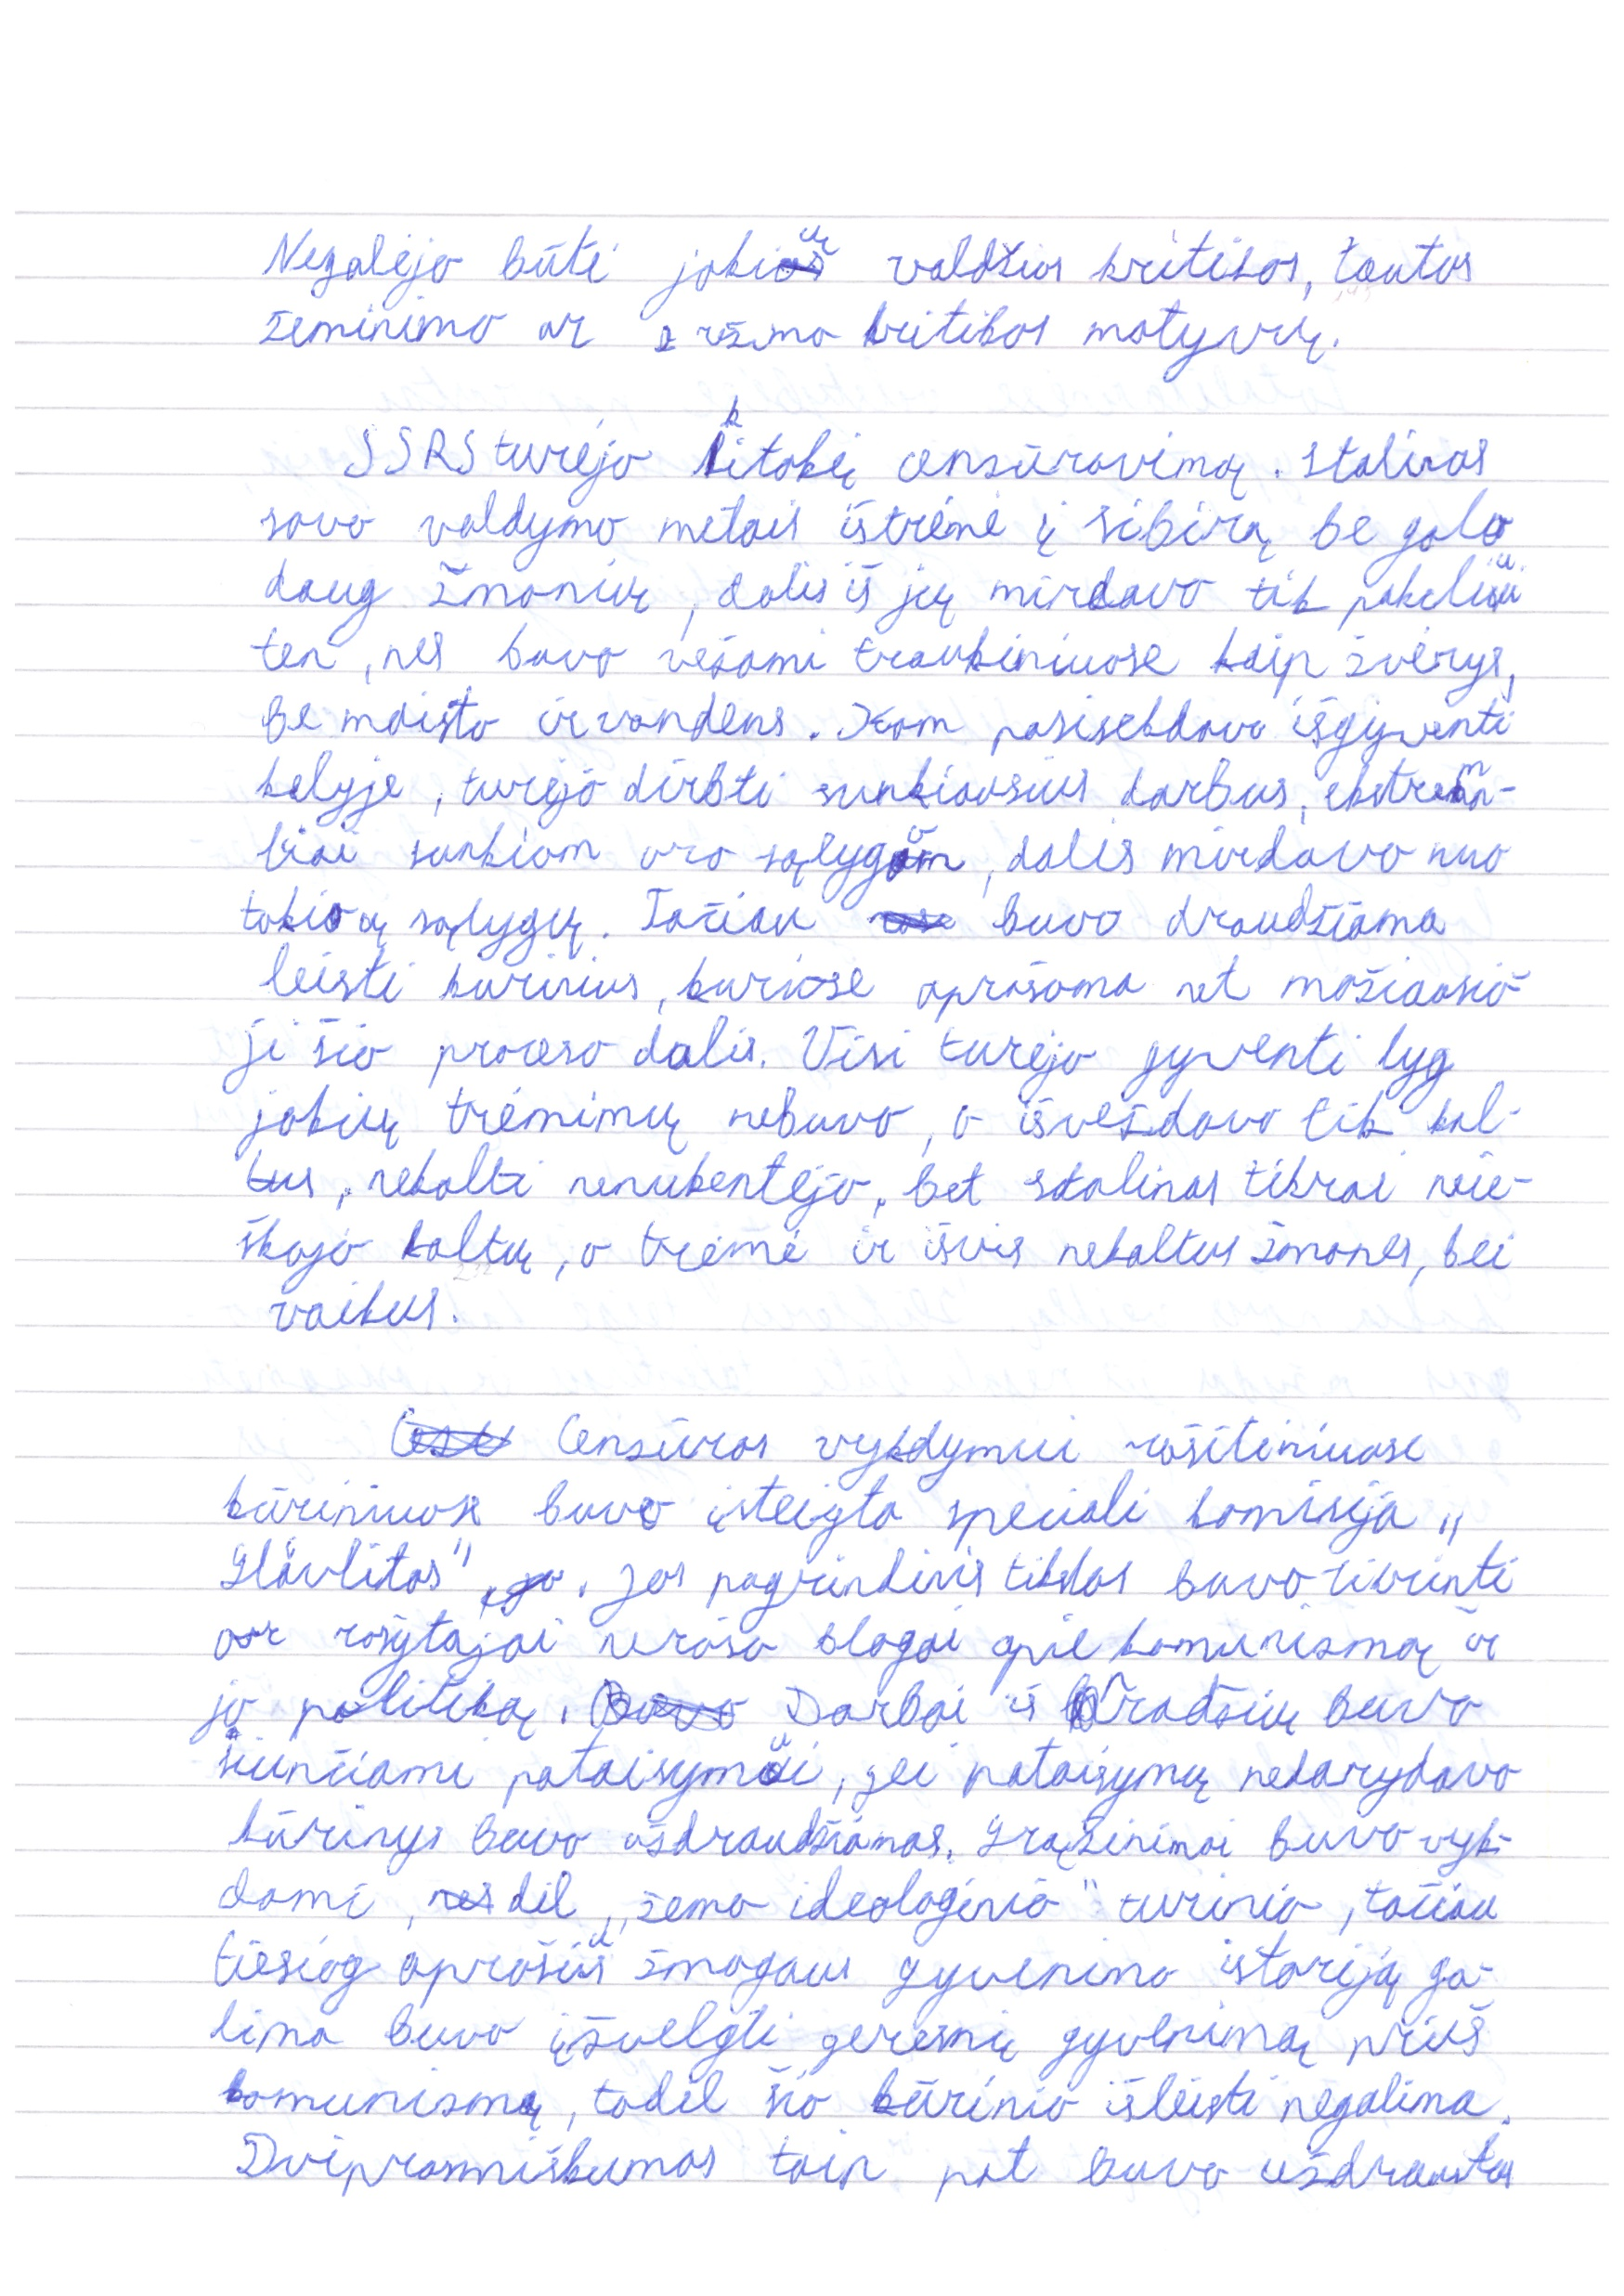 Negalėjo būti jokių valdžios kritikos, tautos
žeminimo ar režimo kritikos motyvų.
SSRS turėjo kitokį cenzūravimą. Stalinas
savo valdymo metais ištrėmė į Sibirą be galo
daug žmonių, dalis iš jų mirdavo tik pakeliui
ten, nes buvo vežami traukiniuose kaip žvėrys,
be maisto ir vandens. Kam pasisekdavo išgyventi
kelyje, turėjo dirbti sunkiausius darbus, ekstrema-
liai sunkiom oro sąlygom, dalis mirdavo nuo
tokių sąlygų. Tačiau buvo draudžiama
leisti kurinius, kuriose aprašoma net mažiausio-
ji šio proceso dalis. Visi turėjo gyventi lyg
jokių trėmimų nebuvo, o išveždavo tik kal-
tus, nekalti nenukentėjo, bet Stalinas tikrai neie-
škojo kaltų, o trėmė ir išvis nekaltus žmones, bei
vaikus.
Cenzūros vykdymui rašitiniuose
kūriniuose buvo įsteigta speciali komisija „
Glavlitas". Jos pagrindinis tikslas buvo tikrinti
ar rašytojai nerašo blogai apie komunizmą ir
jo politiką. Darbai iš pradžių buvo
siunčiami pataisymui, jei pataisymų nedarydavo
kūrinys buvo uždraudžiamas. Grąžinimai buvo vyk-
domi, dėl „žemo ideologinio" turinio, tačiau
tiesiog aprašius žmogaus gyvenimo istoriją ga-
lima buvo įžvelgti geresnį gyvenimą prieš
komunizmą, todėl šio kūrinio išleisti negalima.
Dviprasmiškumas taip pat buvo uždraustas